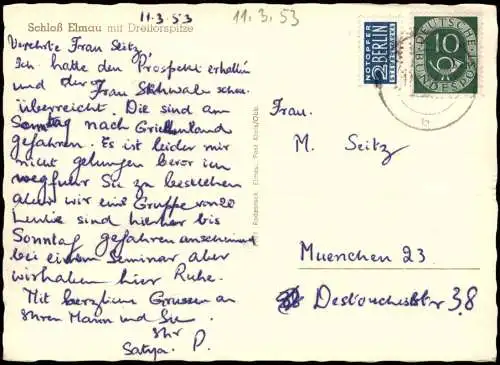 11.3.53
11.3.53
Schloß Elmau mit Dreitorspitze
Verehrte Frau Seitz,
Ich hatte den Prospekt erhalten
und der Frau
überreicht. Die sind am
Sonntag nach Griechenland
gefahren. Es ist leider mir
nicht gelungen bevor ich
wegfuhr Sie zu bestellen
aber wir eine Gruppe von 20
Leute sind hierher bis
Sonntag gefahren anscheinend
bei einem Seminar aber
wir haben hier Ruhe.
Mit herzlichen Grussen an
Ihren Mann und Sie
Ihr
Satya. P.
NOTOPFER
2 BERLIN
STEUERMARKE
DEUTSCHE
BUNDESPOST
10
Frau.
M. Seitz
Muenchen 23
Destouchesstr 38
Post Klais/Obb.